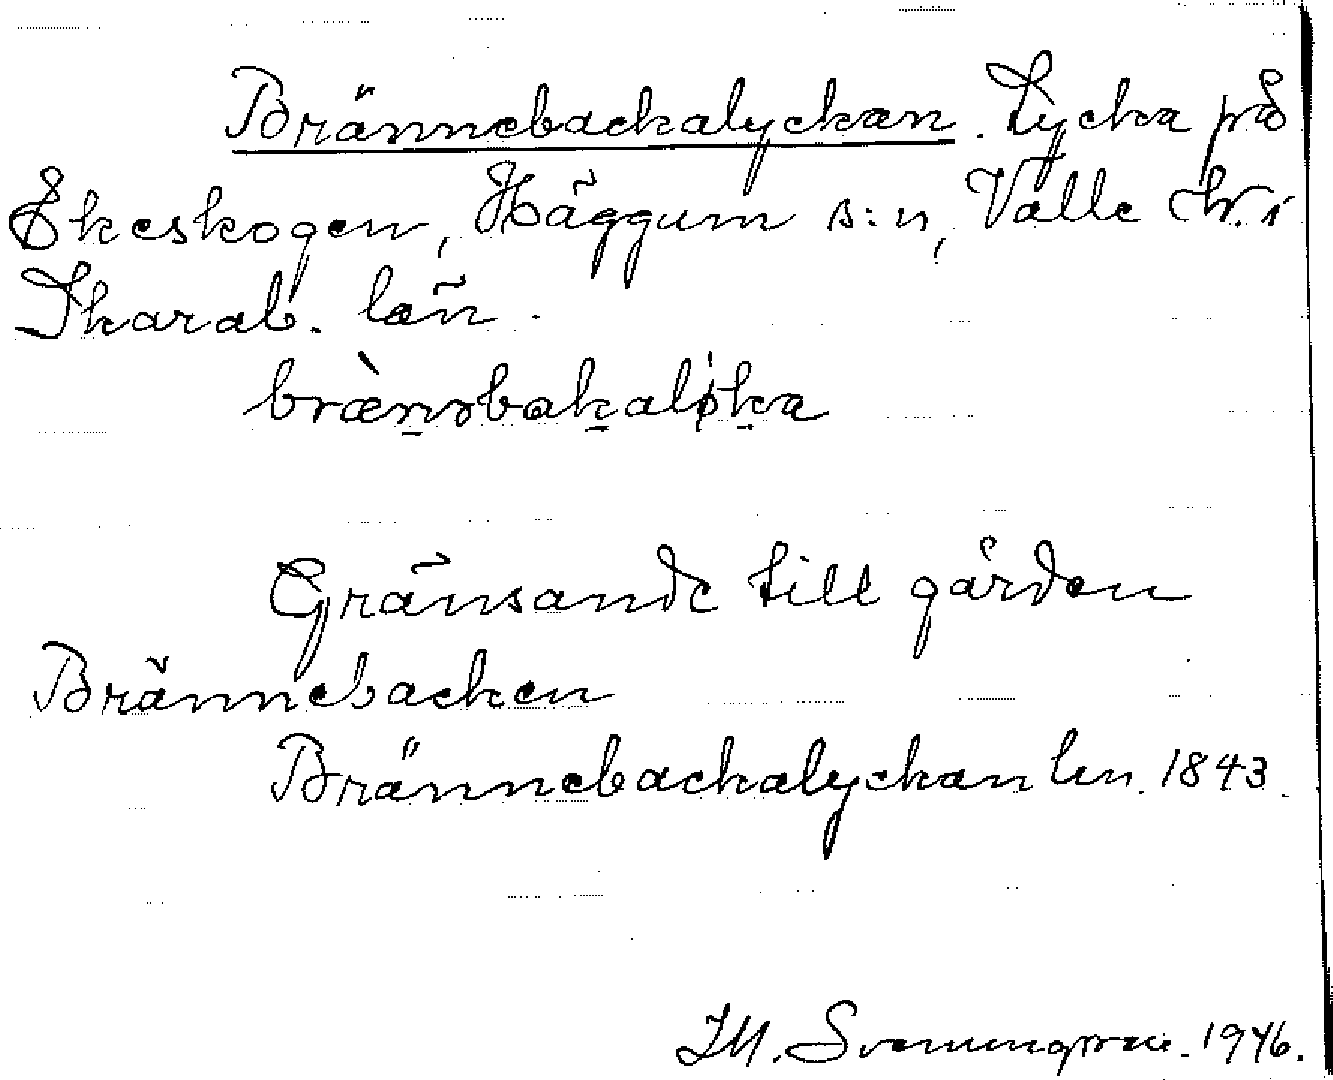 Brännebackalyckan. Lycka på
Ekeskogen, Häggum s:n, Valle hd. i
Skarab. län.
bræ̀nəbakalyka
Gränsande till gården
Brännebacken
Brännebackalyckan lm. 1843.
M. Svenungsson. 1946.